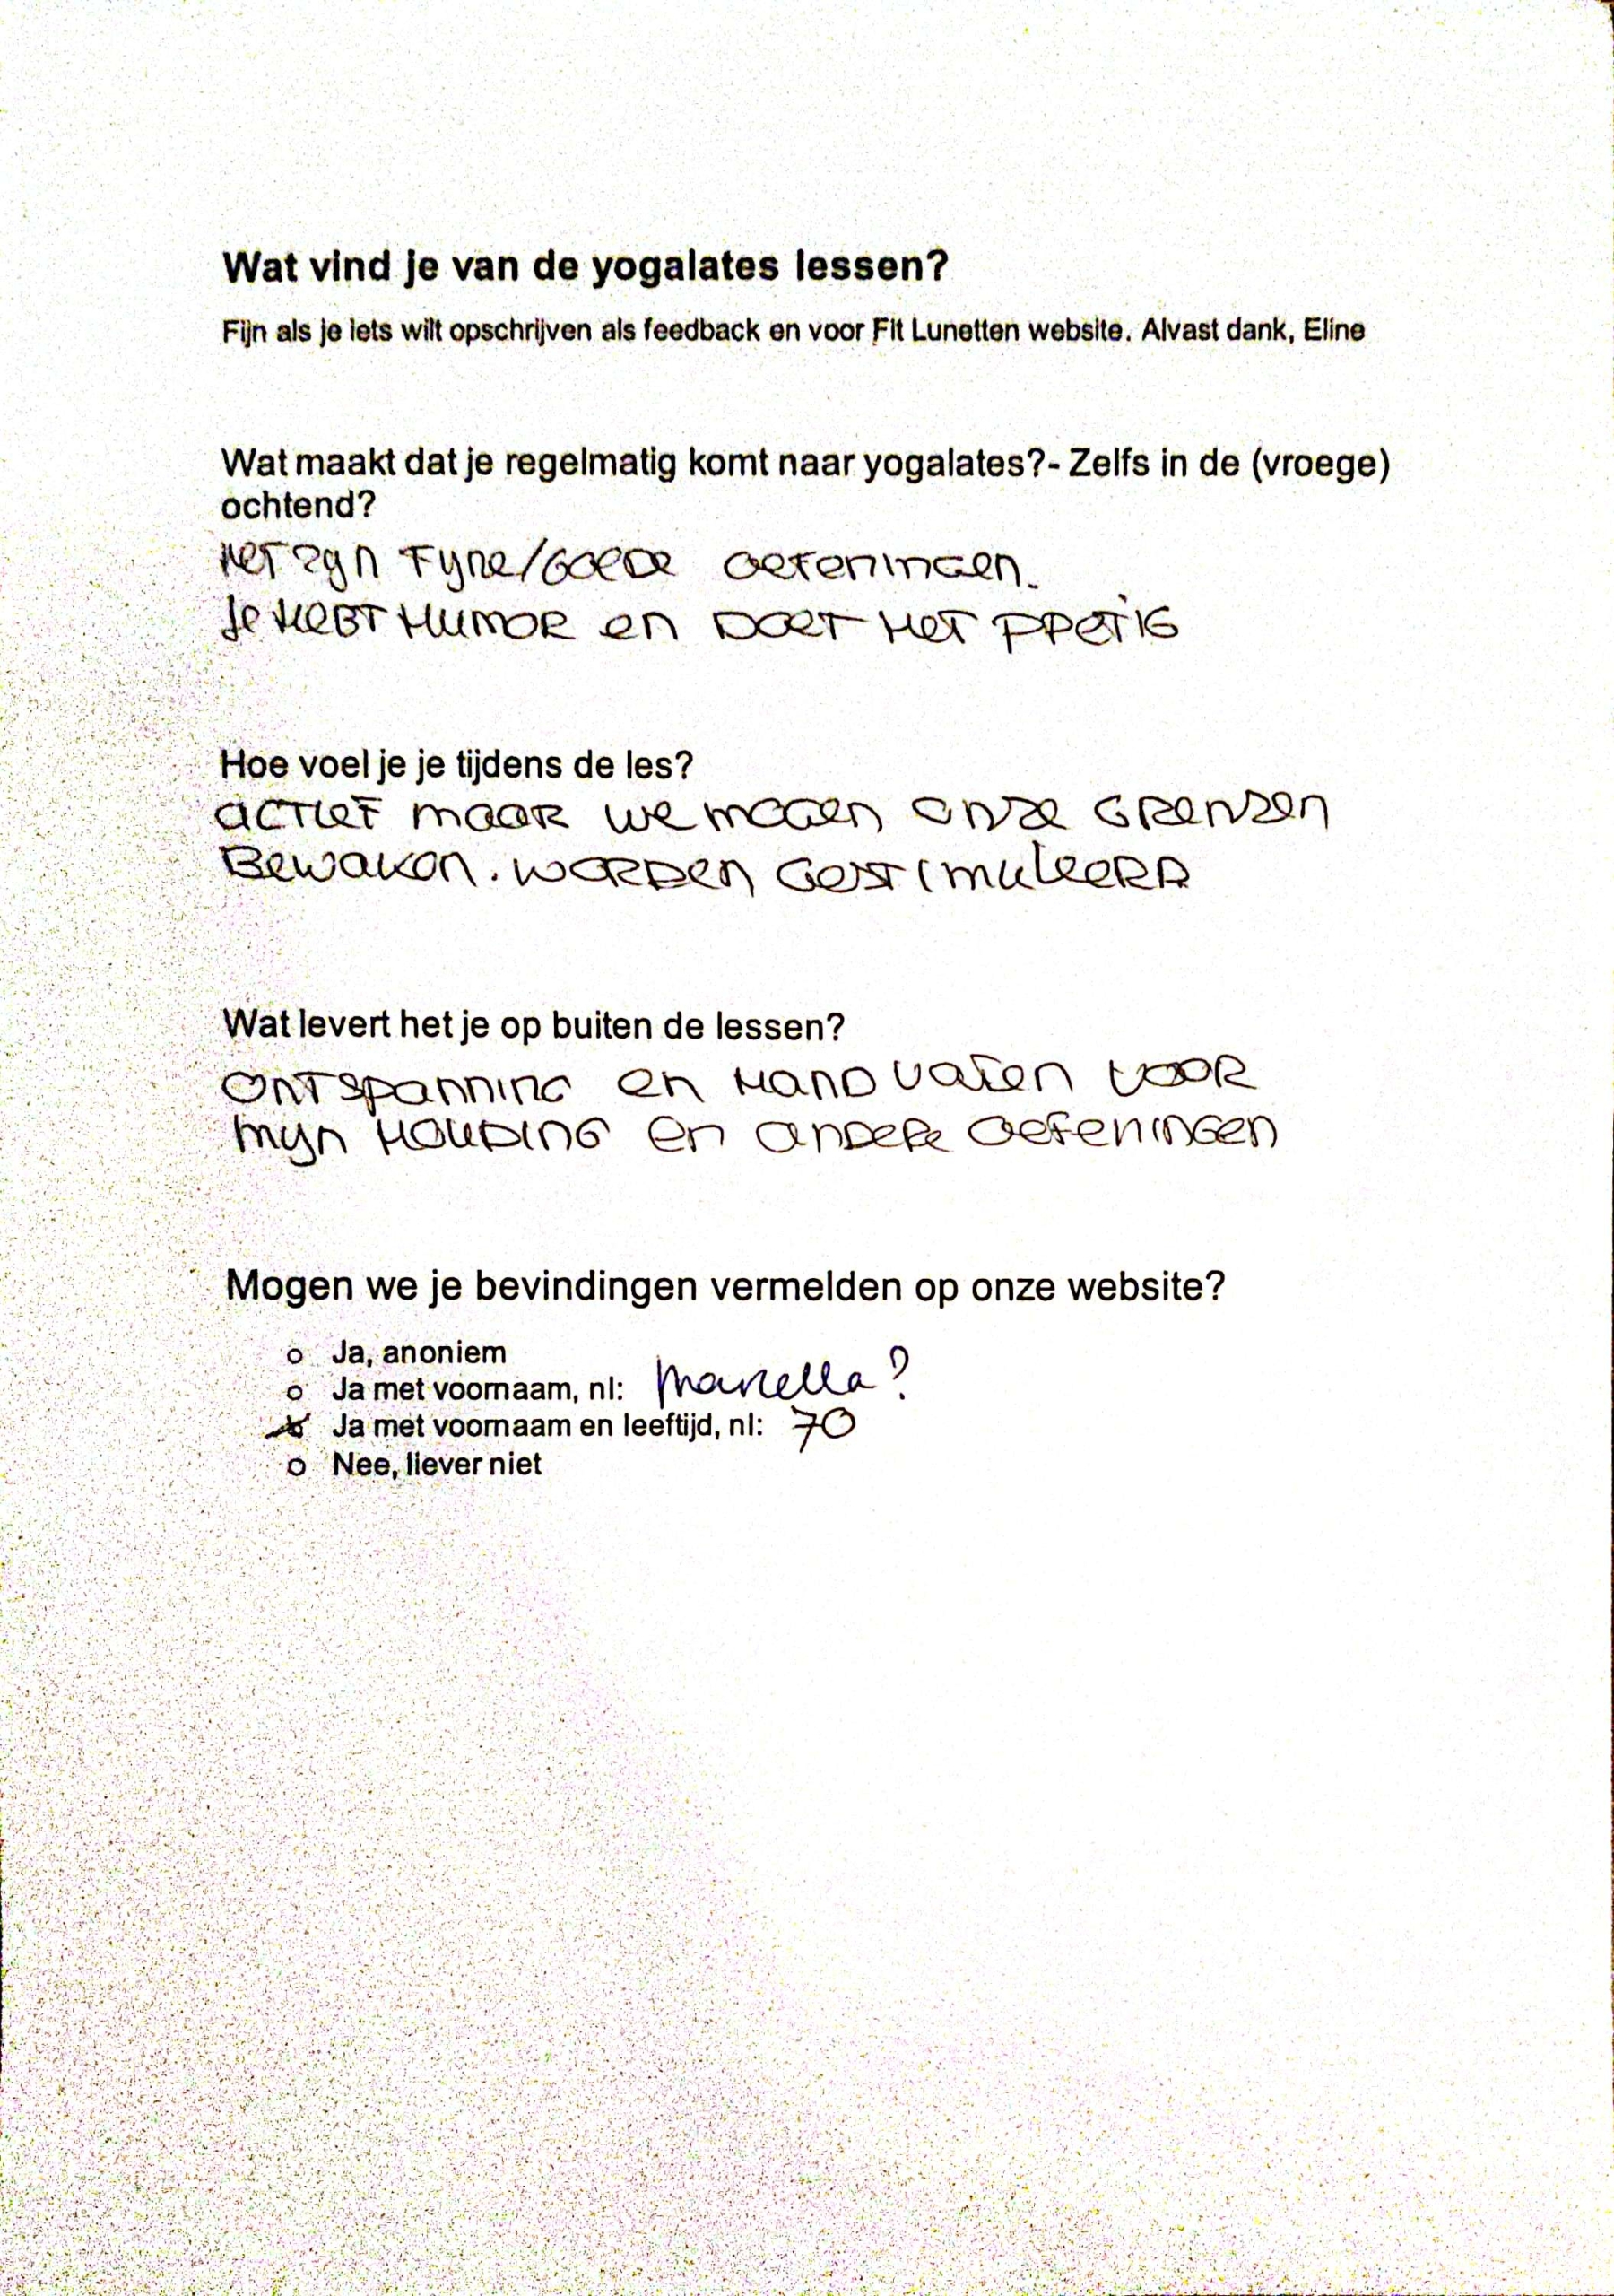 Wat vind je van de yogalates lessen?
Fijn als je iets wilt opschrijven als feedback en voor Fit Lunetten website. Alvast dank, Eline
Wat maakt dat je regelmatig komt naar yogalates?- Zelfs in de (vroege)
ochtend?
Het zyn Fyne/Goede oefeningen.
Je Hebt Humor en Doet Het PRETIG
Hoe voel je je tijdens de les?
actief maar we mogen onze Grenzen
Bewaken. worden Gestimuleerd
Wat levert het je op buiten de lessen?
Ontspanning en Handvaten voor
myn Houding en andere oefeningen
Mogen we je bevindingen vermelden op onze website?
o Ja, anoniem
o Ja met voornaam, nl: Marcella?
x Ja met voornaam en leeftijd, nl: 70
o Nee, liever niet